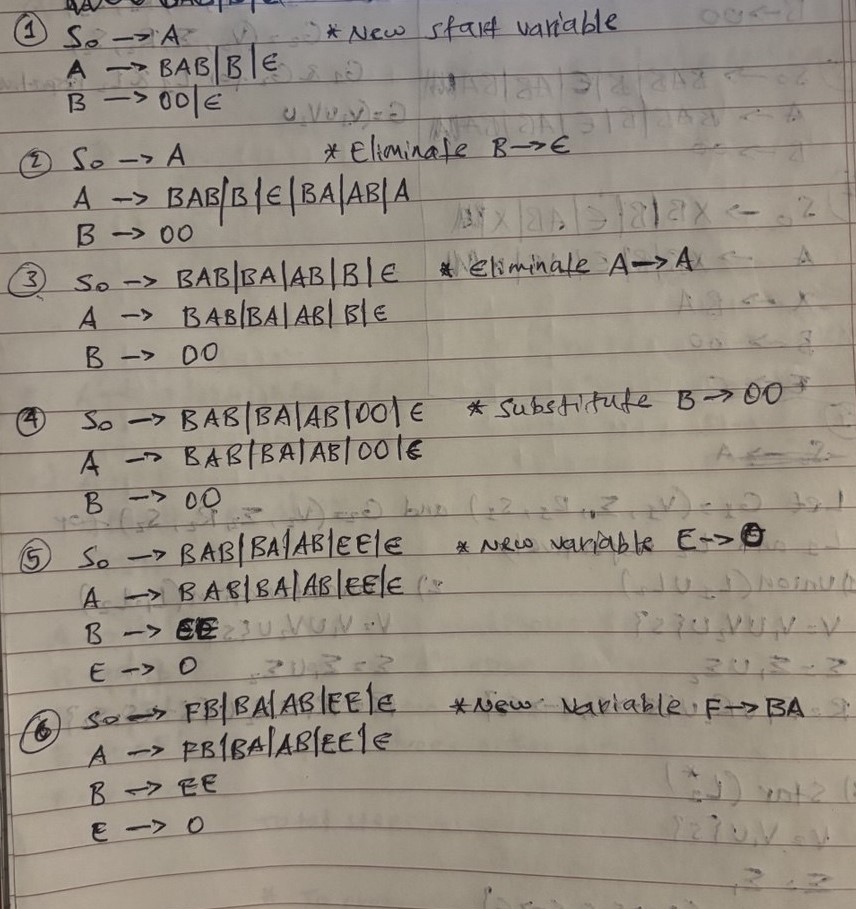 ① S₀ → A * New start variable
A → BAB|B|ϵ
B → 00|ϵ
② S₀ → A * Eliminate B→ϵ
A → BAB|B|ϵ|BA|AB|A
B → 00
③ S₀ → BAB|BA|AB|B|ϵ * Eliminate A→A
A → BAB|BA|AB|B|ϵ
B → 00
④ S₀ → BAB|BA|AB|00|ϵ * Substitute B→00
A → BAB|BA|AB|00|ϵ
B → 00
⑤ S₀ → BAB|BA|AB|EE|ϵ * New variable E→0
A → BAB|BA|AB|EE|ϵ
B → EE
E → 0
⑥ S₀ → FB|BA|AB|EE|ϵ * New variable F→BA
A → FB|BA|AB|EE|ϵ
B → EE
E → 0